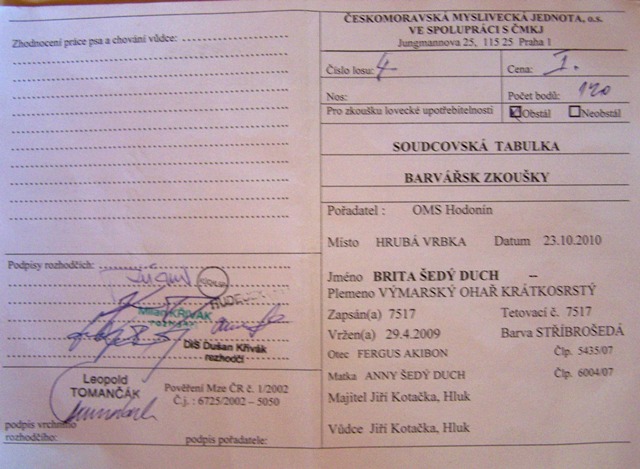 Zhodnocení práce psa a chování vůdce:
Podpisy rozhodčích:
Milan KŘIVÁK
DiS Dušan Křivák
rozhodčí
Leopold
TOMANČÁK
Pověření Mze ČR č. 1/2002
Č.j. : 6725/2002 – 5050
podpis vrchního
rozhodčího:
podpis pořadatele:
ČESKOMORAVSKÁ MYSLIVECKÁ JEDNOTA, o.s.
VE SPOLUPRÁCI S ČMKJ
Jungmannova 25, 115 25 Praha 1
Číslo losu: 4 Cena: I.
Nos: Počet bodů: 120
Pro zkoušku lovecké upotřebitelnosti Obstál Neobstál
SOUDCOVSKÁ TABULKA
BARVÁŘSK ZKOUŠKY
Pořadatel : OMS Hodonín
Místo HRUBÁ VRBKA Datum 23.10.2010
Jméno BRITA ŠEDÝ DUCH --
Plemeno VÝMARSKÝ OHAŘ KRÁTKOSRSTÝ
Zapsán(a) 7517 Tetovací č. 7517
Vržen(a) 29.4.2009 Barva STŘÍBROŠEDÁ
Otec FERGUS AKIBON Člp. 5435/07
Matka ANNY ŠEDÝ DUCH Člp. 6004/07
Majitel Jiří Kotačka, Hluk
Vůdce Jiří Kotačka, Hluk